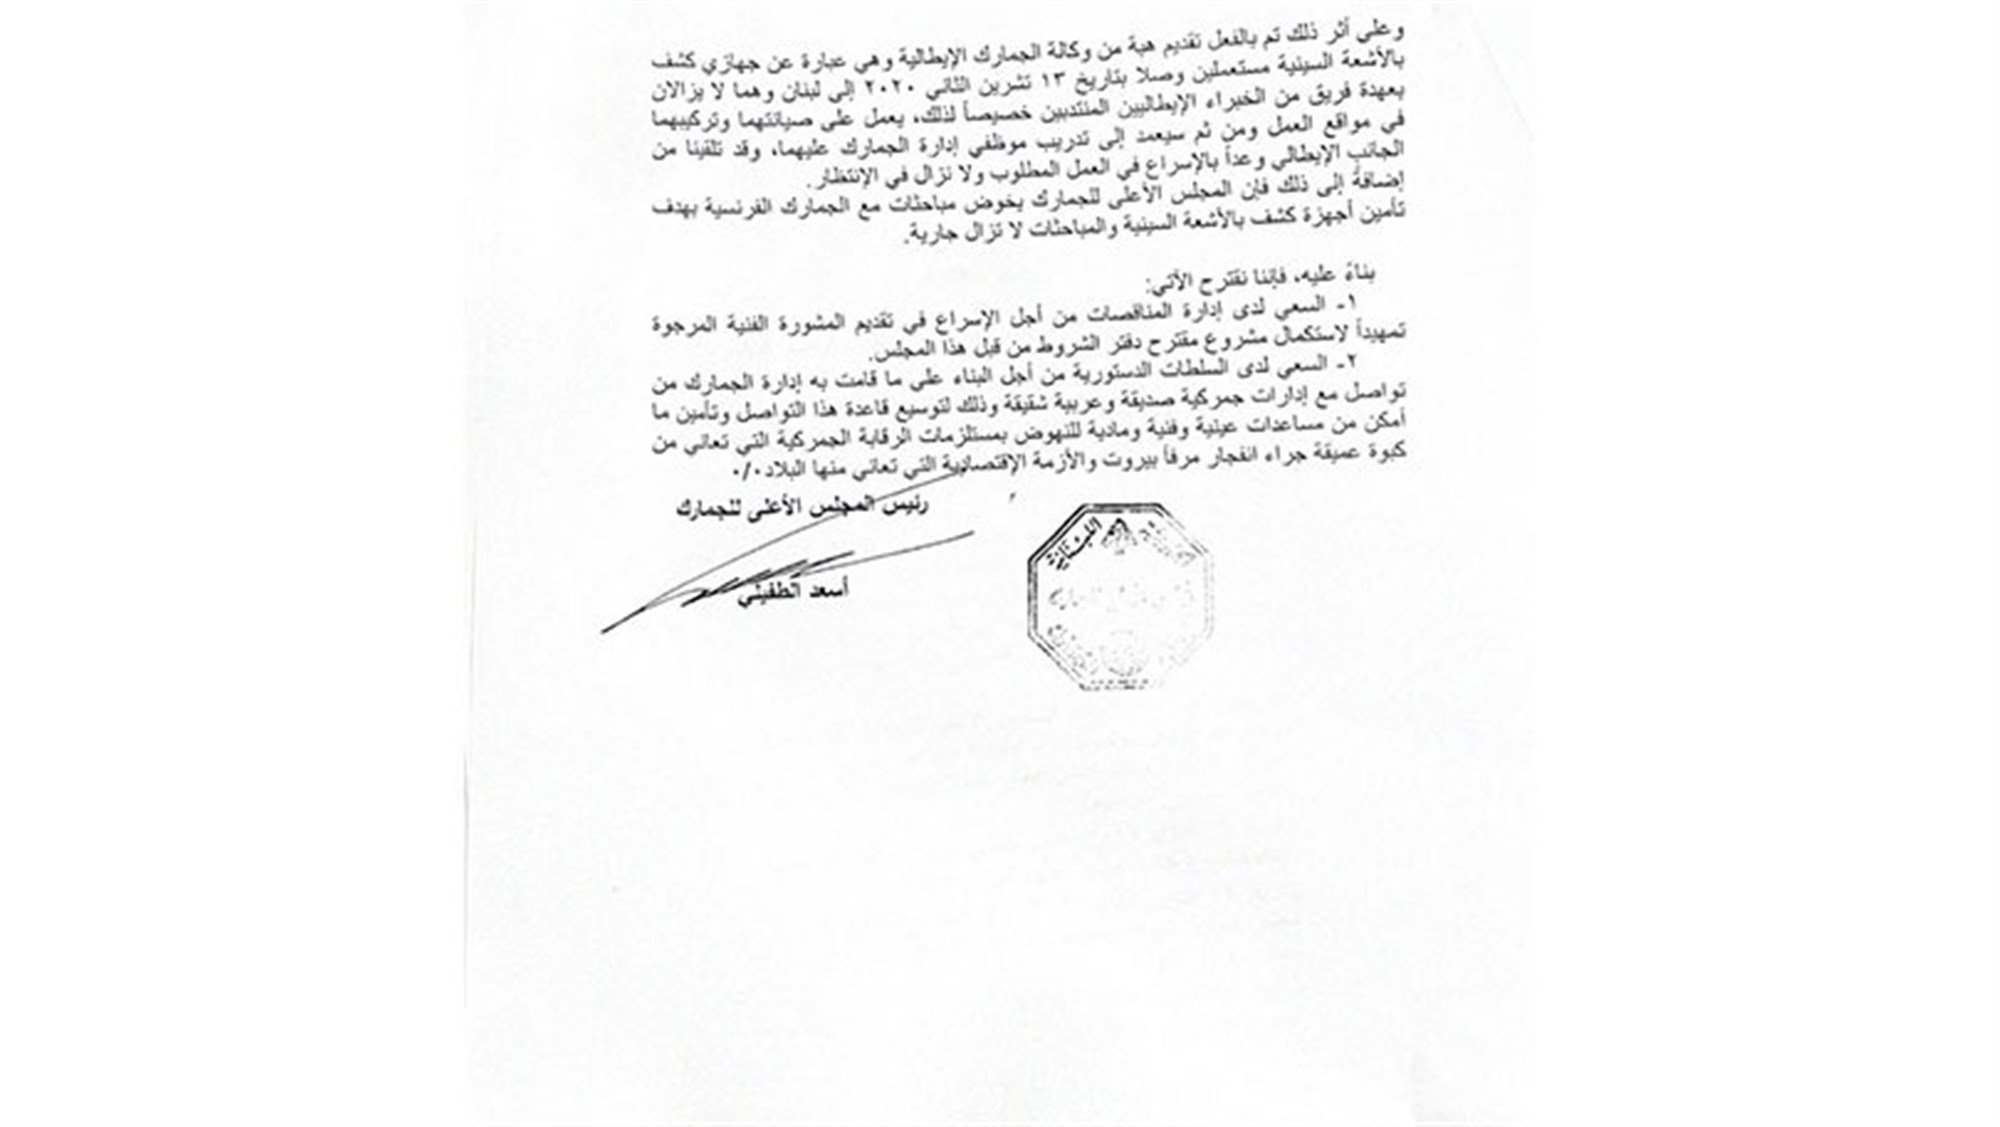 وعلى أثر ذلك تم بالفعل تقديم هبة من وكالة الجمارك الإيطالية وهي عبارة عن جهازي كشف
بالأشعة السينية مستعملين وصلا بتاريخ ١٣ تشرين الثاني ٢٠٢٠ إلى لبنان وهما لا يزالان
بعهدة فريق من الخبراء الإيطاليين المنتدبين خصيصاً لذلك، يعمل على صيانتهما وتركيبهما
في مواقع العمل ومن ثم سيعمد إلى تدريب موظفي إدارة الجمارك عليهما، وقد تلقينا من
الجانب الإيطالي وعداً بالإسراع في العمل المطلوب ولا نزال في الإنتظار.
إضافةً إلى ذلك فإن المجلس الأعلى للجمارك يخوض مباحثات مع الجمارك الفرنسية بهدف
تأمين أجهزة كشف بالأشعة السينية والمباحثات لا تزال جارية.
بناءً عليه، فإننا نقترح الآتي:
١- السعي لدى إدارة المناقصات من أجل الإسراع في تقديم المشورة الفنية المرجوة
تمهيداً لاستكمال مشروع مقترح دفتر الشروط من قبل هذا المجلس.
٢- السعي لدى السلطات الدستورية من أجل البناء على ما قامت به إدارة الجمارك من
تواصل مع إدارات جمركية صديقة وعربية شقيقة وذلك لتوسيع قاعدة هذا التواصل وتأمين ما
أمكن من مساعدات عينية وفنية ومادية للنهوض بمستلزمات الرقابة الجمركية التي تعاني من
كبوة عميقة جراء انفجار مرفأ بيروت والأزمة الإقتصادية التي تعاني منها البلاد٠/٠
رئيس المجلس الأعلى للجمارك
أسعد الطفيلي
اللبنانية